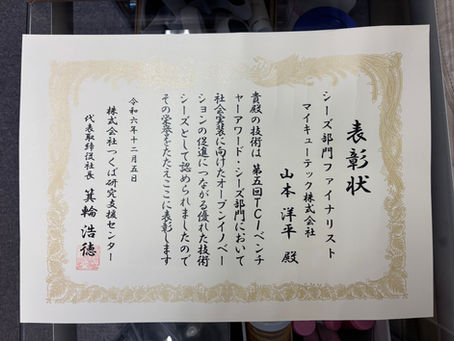 表彰状
シーズ部門ファイナリスト
マイキューテック株式会社
山本洋平 殿
貴殿の技術は第五回TCIベンチ
ャーアワード・シーズ部門において
社会実装に向けたオープンイノベー
ションの促進につながる優れた技術
シーズとして認められましたので
その栄誉をたたえここに表彰します
令和六年十二月五日
株式会社つくば研究支援センター
代表取締役社長 箕輪浩徳